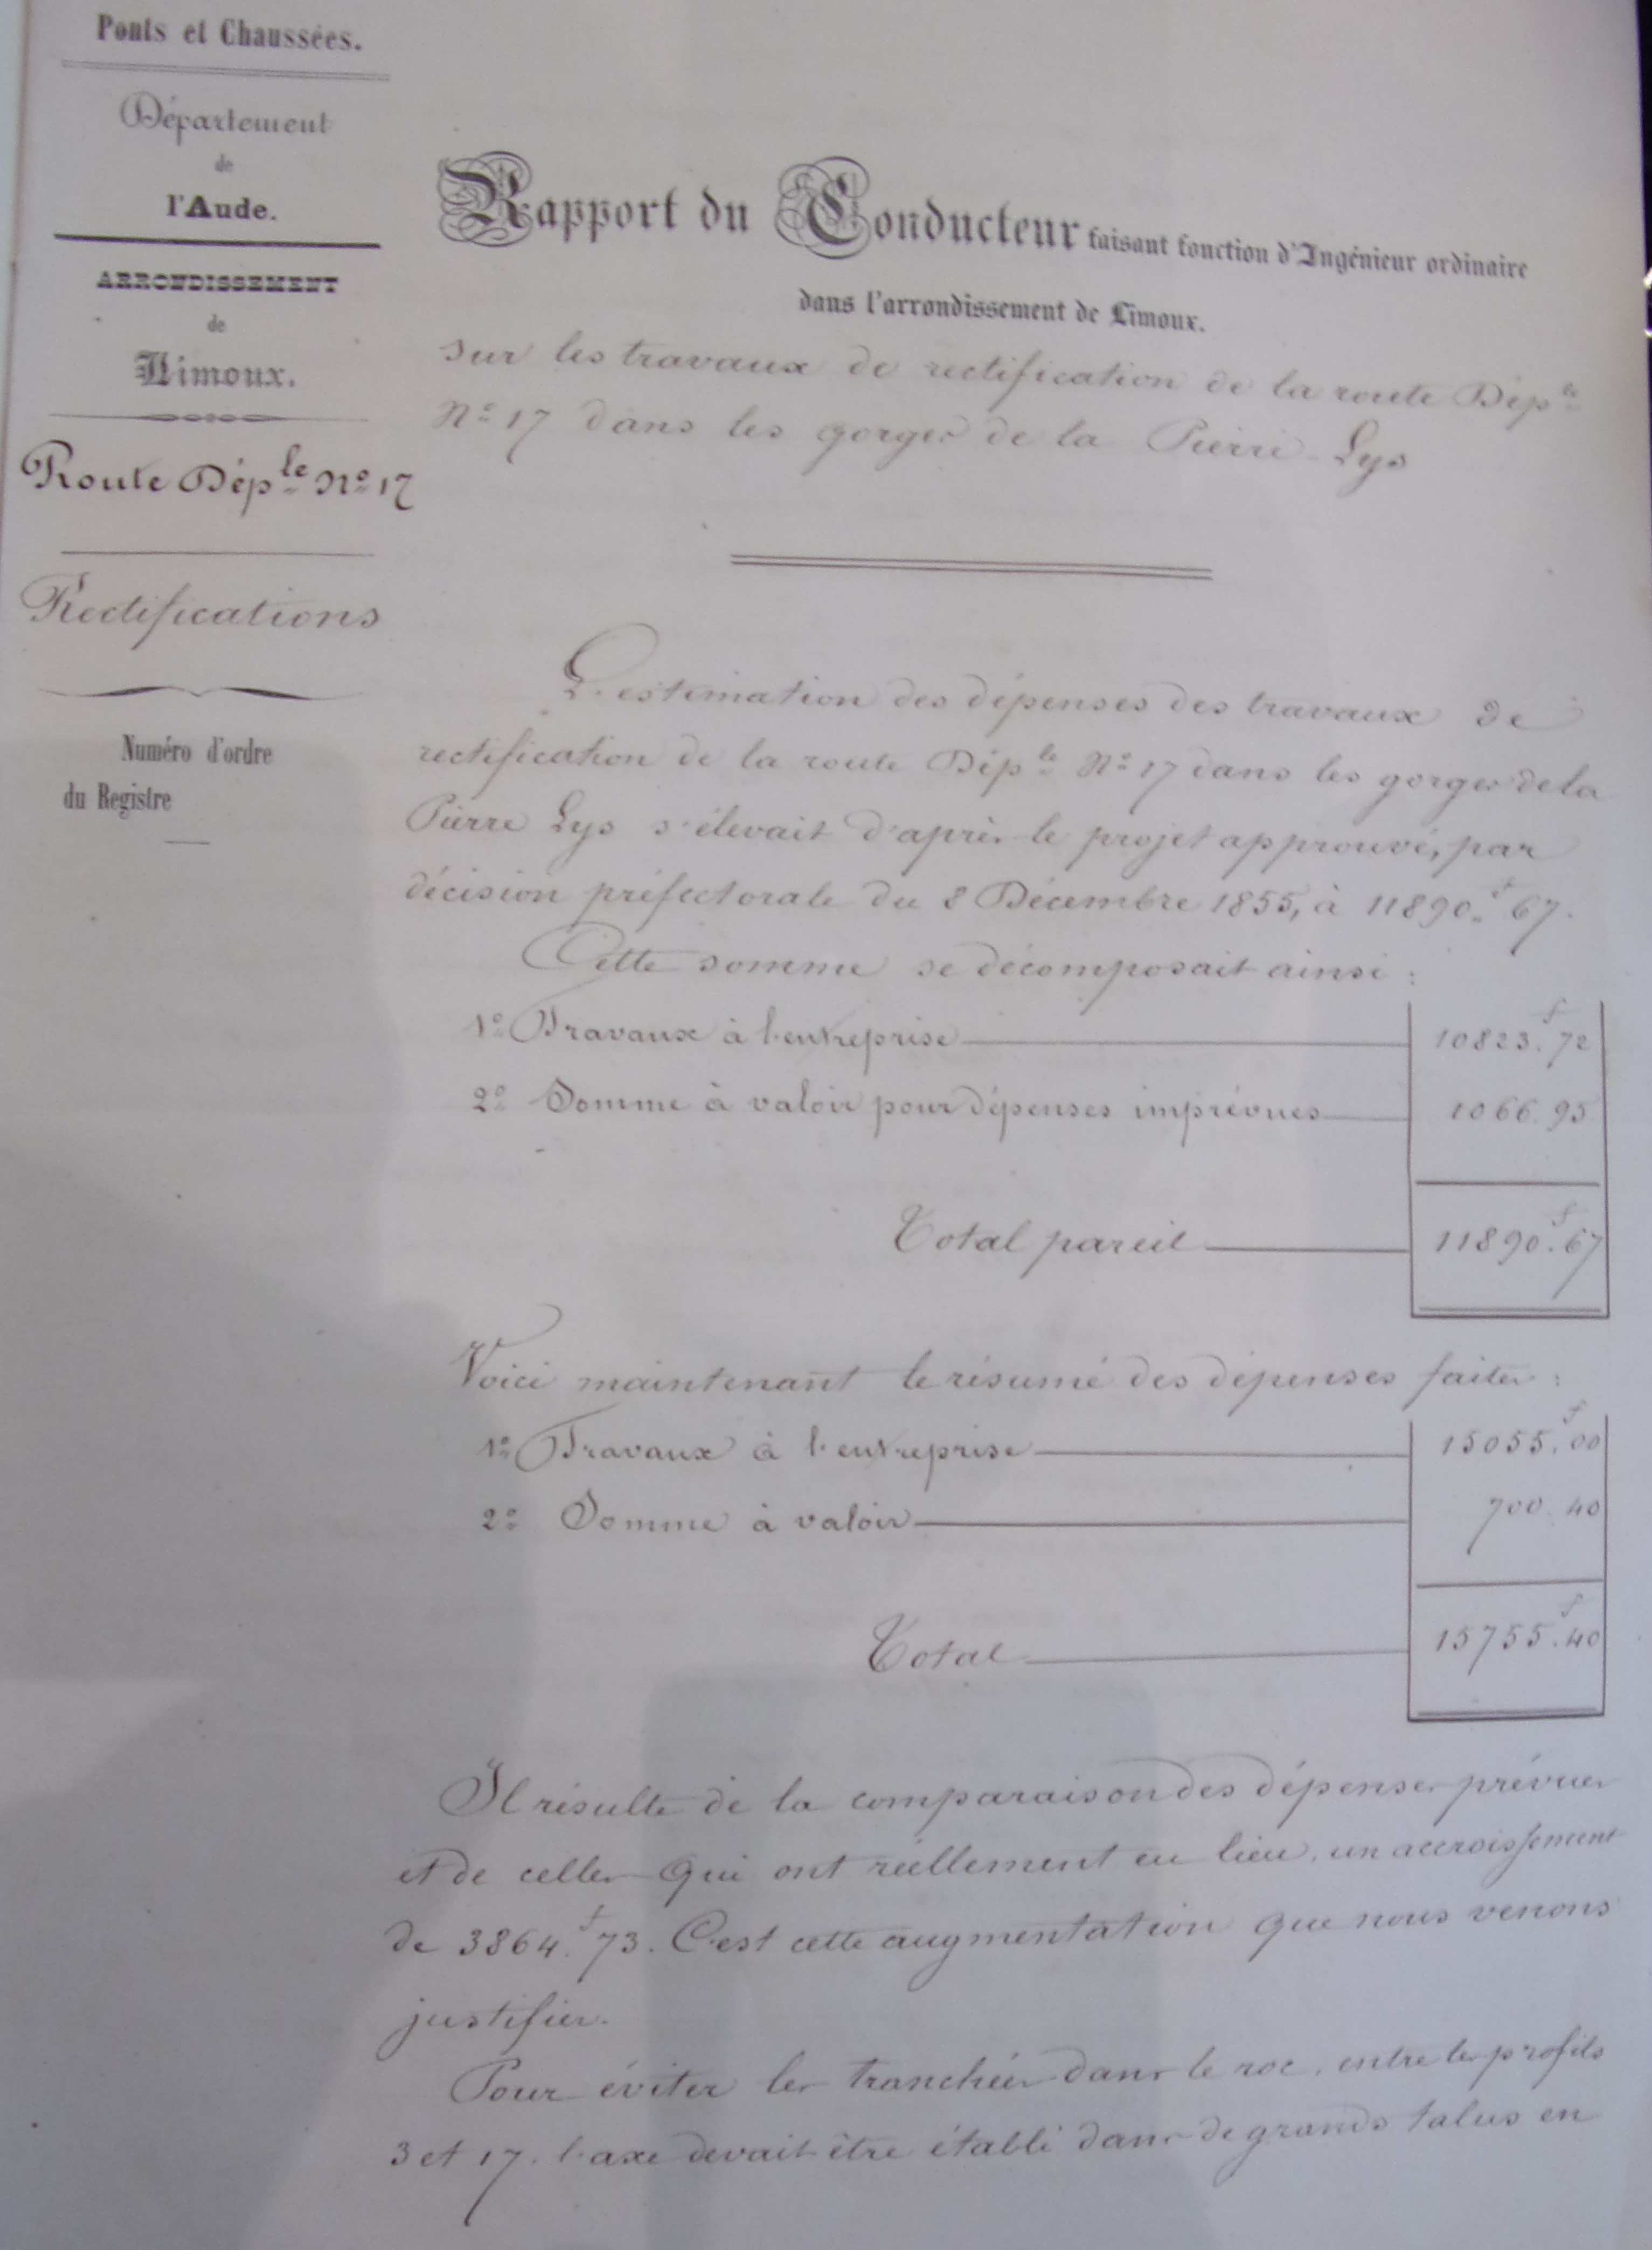 Ponts et Chaussées.
Département
de
l'Aude.
ARRONDISSEMENT
de
Limoux.
Route Dép.le N.o 17
Rectifications
Numéro d'ordre
du Registre
Rapport du Conducteur faisant fonction d'Ingénieur ordinaire
dans l'arrondissement de Limoux.
sur les travaux de rectification de la route Dép.le
N.o 17 dans les gorges de la Pierre-Lys
L'estimation des dépenses des travaux de
rectification de la route Dép.le N.o 17 dans les gorges de la
Pierre Lys s'élevait d'après le projet approuvé, par
décision préfectorale du 8 Décembre 1855, à 11890.f 67.
Cette somme se décomposait ainsi :
1.o Travaux à l'entreprise 10823.f 72
2.o Somme à valoir pour dépenses imprévues 1066. 95
Total pareil 11890.f 67
Voici maintenant le résumé des dépenses faites :
1.o Travaux à l'entreprise 15055.f 00
2.o Somme à valoir 700. 40
Total 15755.f 40
Il résulte de la comparaison des dépenses prévues
et de celles qui ont réellement eu lieu, un accroissement
de 3864.f 73. C'est cette augmentation que nous venons
justifier.
Pour éviter les tranchées dans le roc, entre les profils
3 et 17, l'axe devait être établi dans de grands talus en